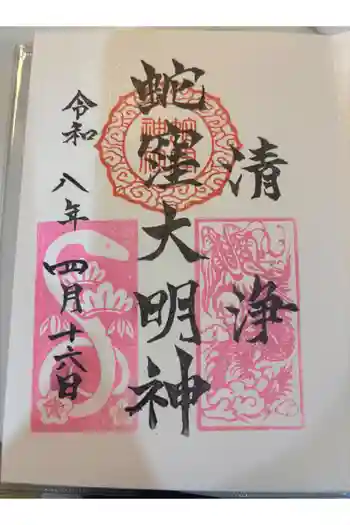 清浄
蛇窪大明神
令和八年四月十六日